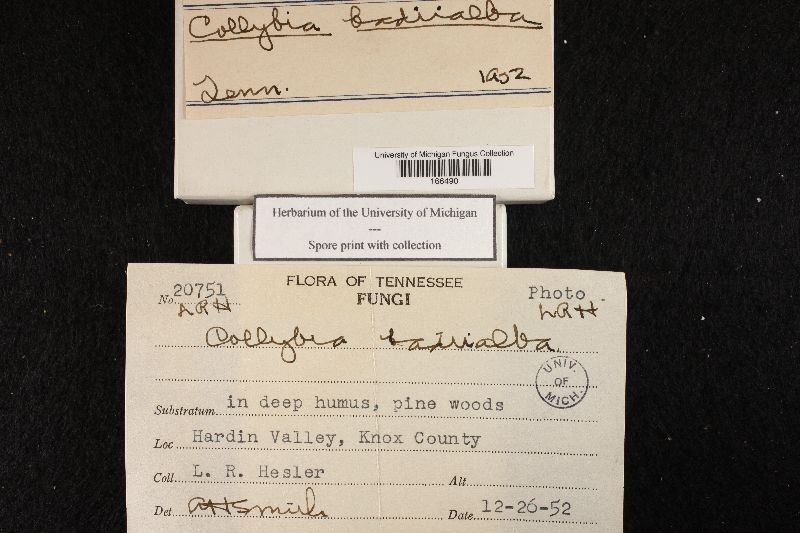 Collybia badiialba
Tenn. 1952
University of Michigan Fungus Collection
166490
Herbarium of the University of Michigan
---
Spore print with collection
FLORA OF TENNESSEE
No. 20751 FUNGI Photo
LRH LRH
Collybia badiialba
UNIV. OF MICH.
Substratum in deep humus, pine woods
Loc Hardin Valley, Knox County
Coll. L. R. Hesler Alt
Det AHSmith Date 12-26-52